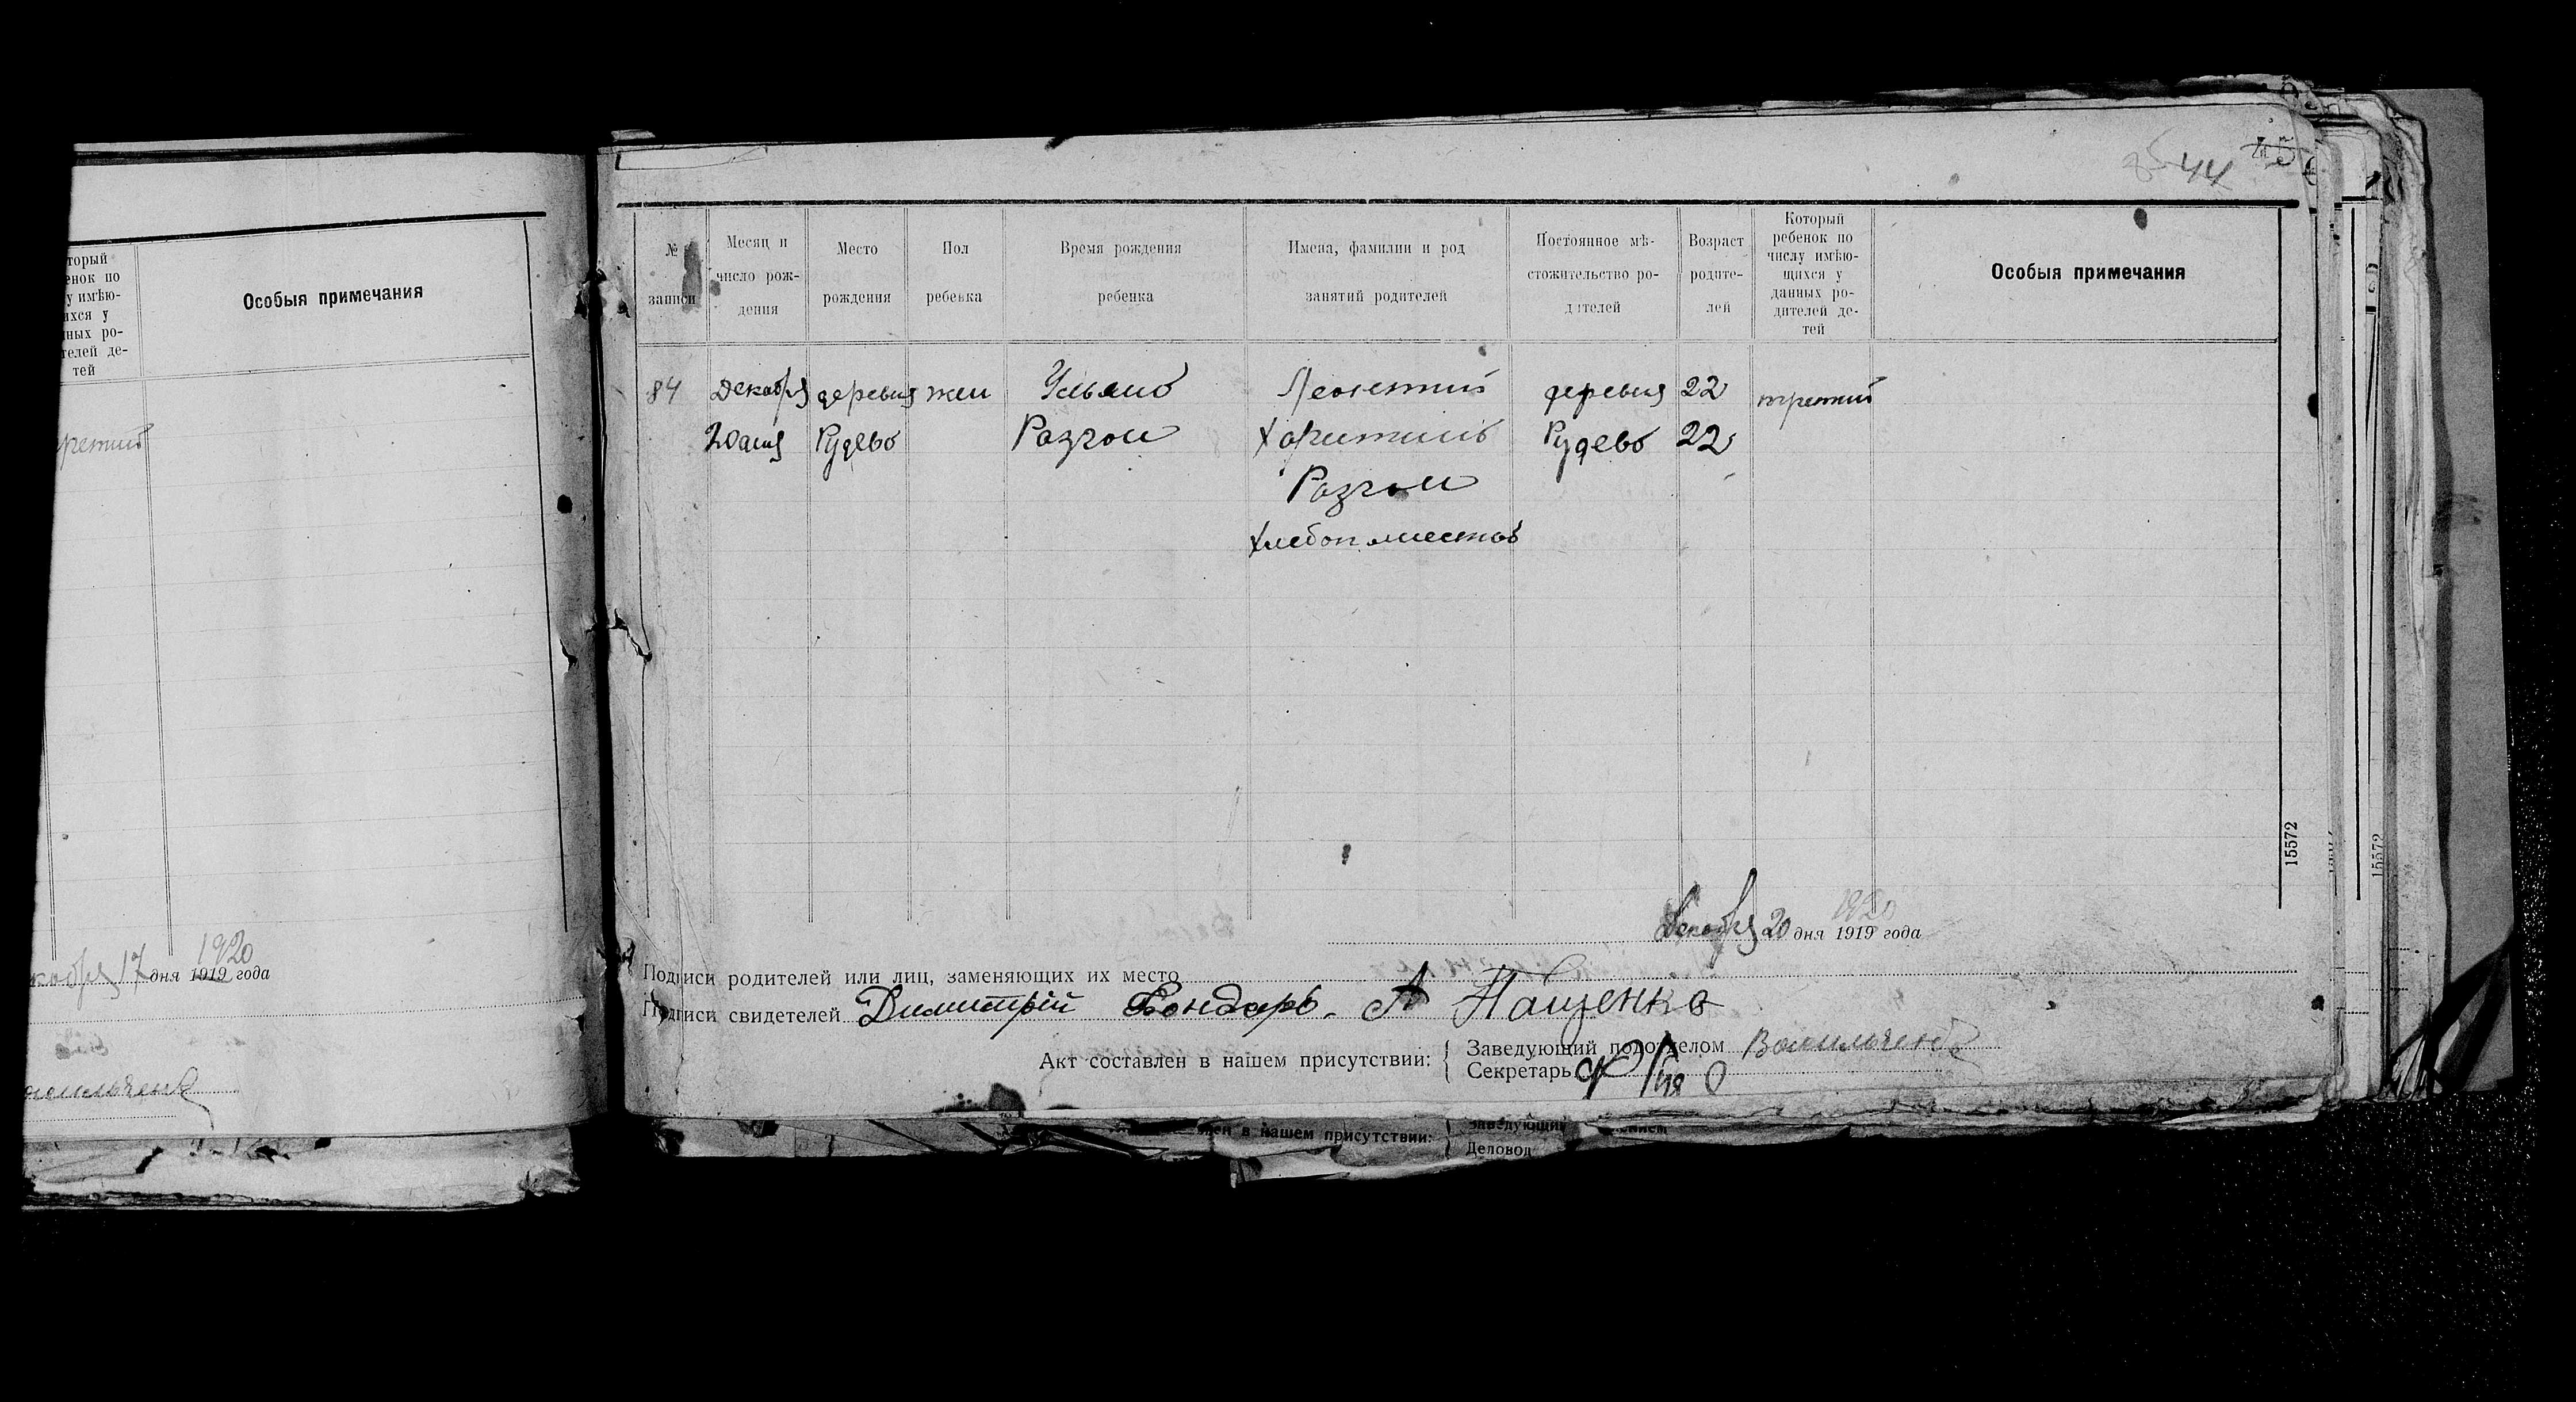 торый
енок по
у имѣю-
ихся у
нных ро-
телей де-
тей
Особыя примечания
третий
кабря 17 дня 1919 года
1920
44
№
записи
Месяц и
число рож-
дения
Место
рождения
Пол
ребенка
Время рождения
ребенка
Имена, фамилии и род
занятий родителей
Постоянное мѣ-
стожительство ро-
дителей
Возраст
родите-
лей
Который
ребенок по
числу имѣю-
щихся у
данных ро-
дителей де-
тей
Особыя примечания
84 Декабря деревня жен Ульяно Леонтий деревня 22 третий
20 дня Рудево Разгон Харитино Рудево 22
Разгон
15572
1920
Декабря 20 дня 1919 года
Подписи родителей или лиц, заменяющих их место
Подписи свидетелей Димитрій Бондарь. А Нащенко
Акт составлен в нашем присутствии:
Заведующий подотделом Васильченко
Секретарь
ен в нашем присутствии:
Заведующий
Деловод
15572